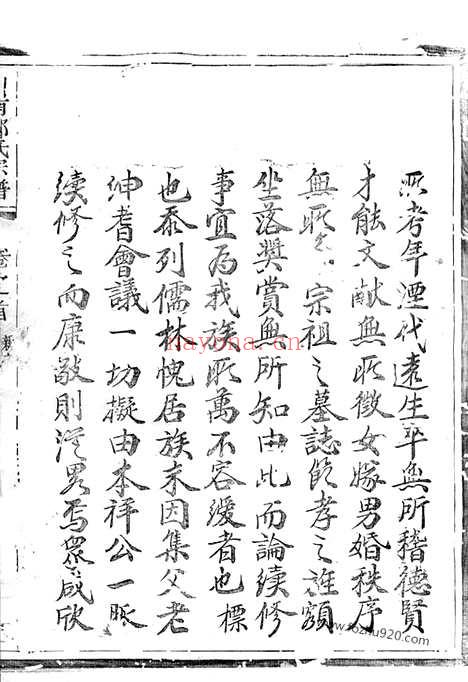 所考年湮代遠生平無所稽德賢
才能文獻無所徵女嫁男婚秩序
無所 宗祖之墓誌節孝之旌額
坐落獎賞無所知由此而論續修
事宜為我族所萬不容緩者也標
也忝列儒林愧居族末因集父老
紳耆會議一切擬由本祥公一脈
續修之而康敬則從畧焉眾 咸欣
南 氏宗譜
卷 首
nayona.cn
www.fozhu920.com